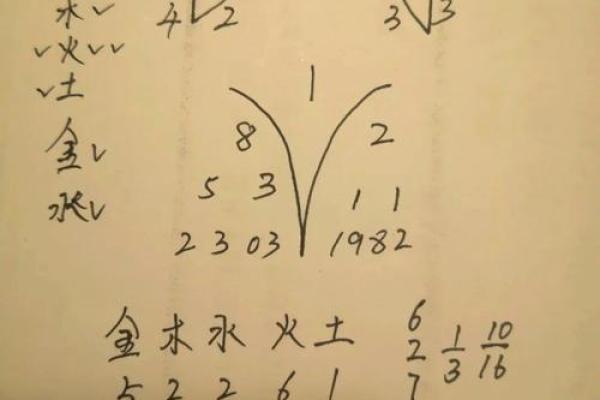 木✓ 4 2 3 3
✓火✓✓
✓土 1
金✓ 8 2
5 3 1 1
水✓ 2 3 03 1982
金 木 水 火 土 6 2 1/3 10/16
5 2 2 6 1 7